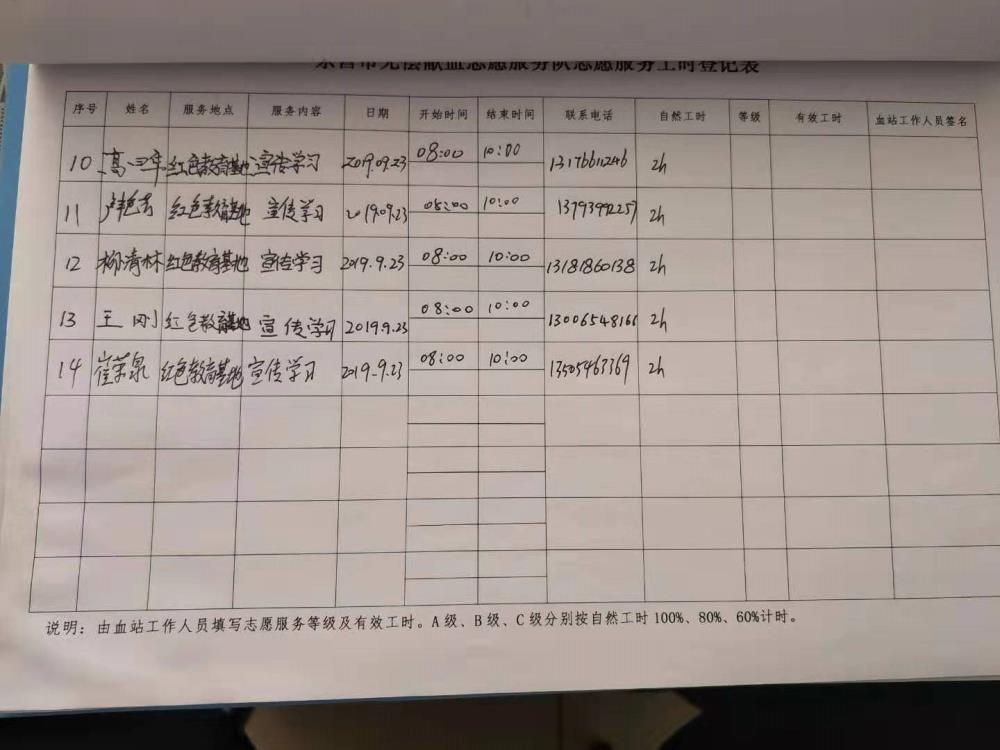 东营市无偿献血志愿服务队志愿服务工时登记表
序号 姓名 服务地点 服务内容 日期 开始时间 结束时间 联系电话 自然工时 等级 有效工时 血站工作人员签名
10 红色教育基地 宣传学习 2019.09.23 08:00 10:00 13176611246 2h
11 红色教育基地 宣传学习 2019.09.23 08:00 10:00 13793992257 2h
12 柳清林 红色教育基地 宣传学习 2019.9.23 08:00 10:00 13181860138 2h
13 王刚 红色教育基地 宣传学习 2019.9.23 08:00 10:00 13006548166 2h
14 崔荣泉 红色教育基地 宣传学习 2019.9.23 08:00 10:00 13505463369 2h
说明：由血站工作人员填写志愿服务等级及有效工时。A级、B级、C级分别按自然工时100%、80%、60%计时。